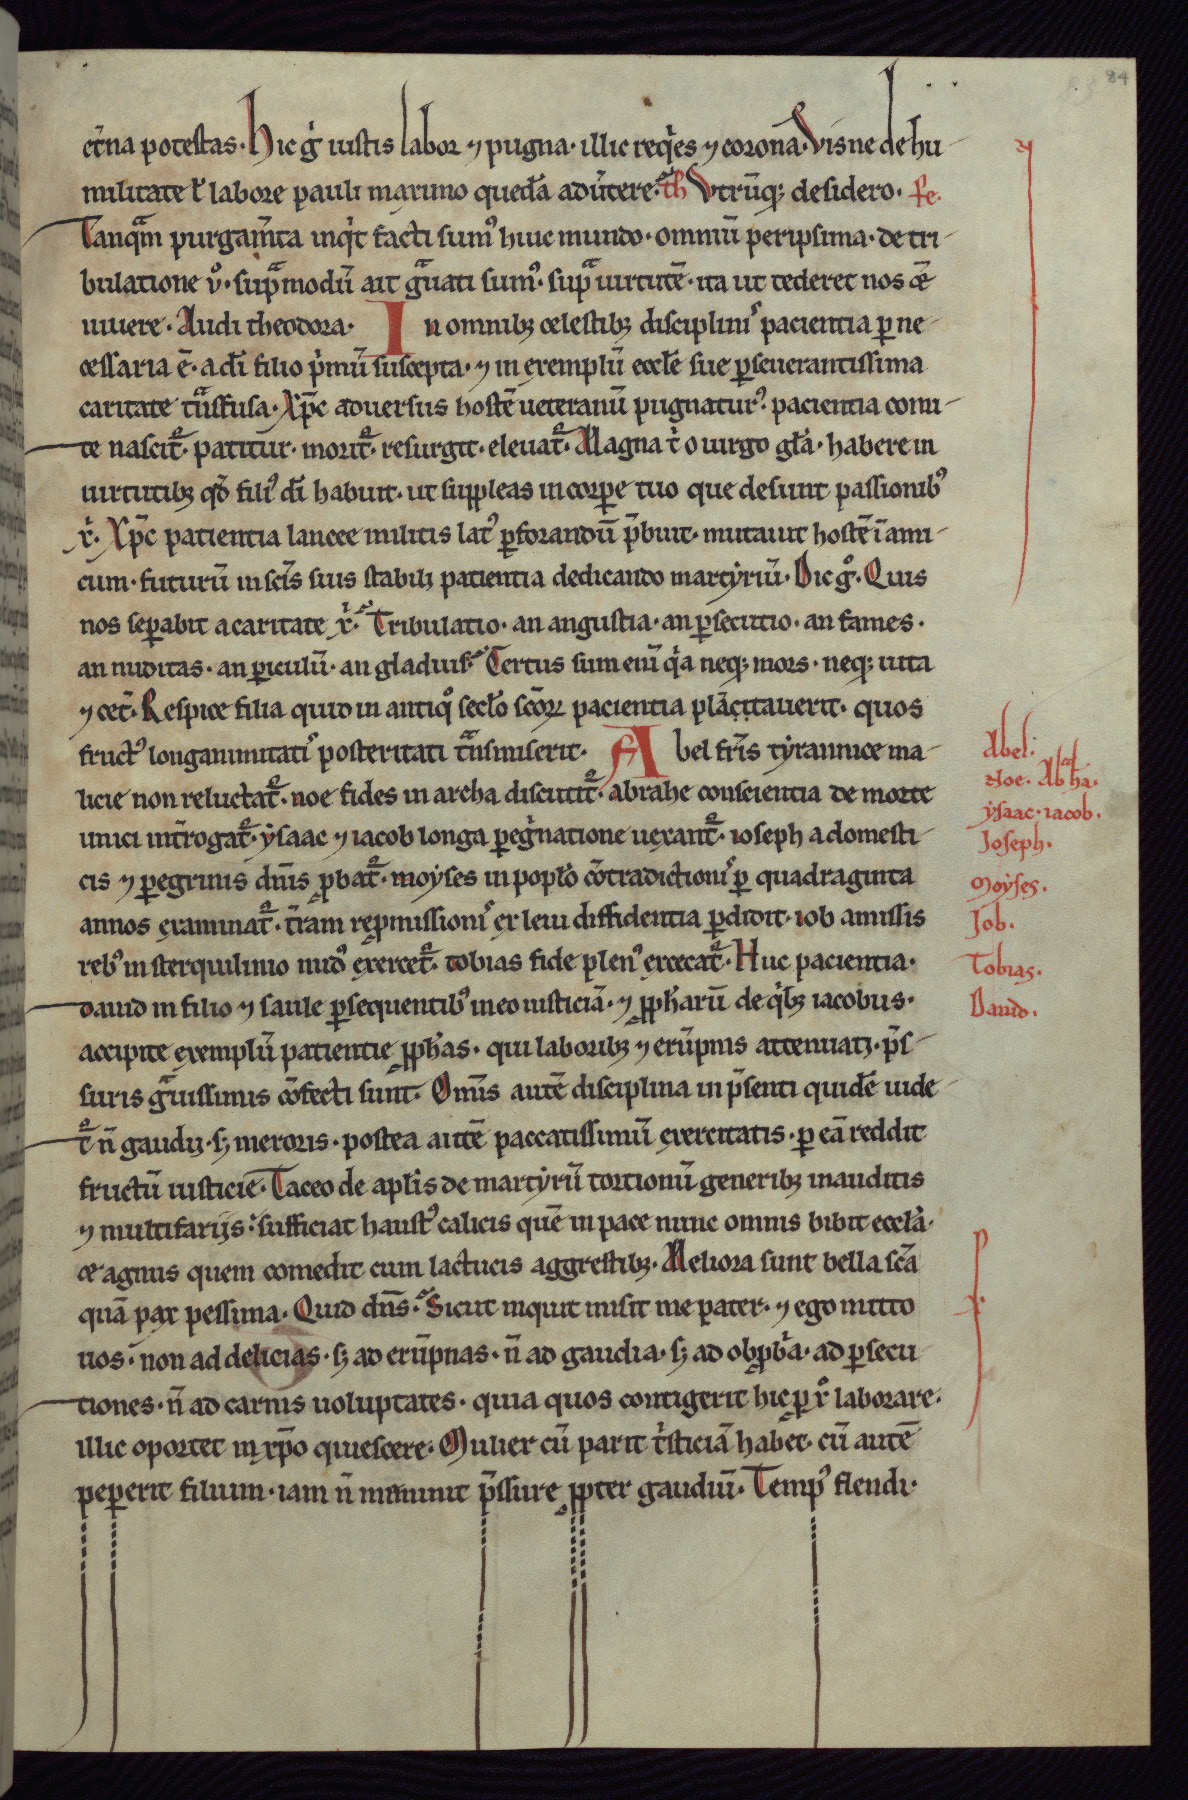 84
et̄na potestas. Hic g̾ iustis labor ⁊ pugna. illic req̾es ⁊ corona. Visne de hu
militate ł labore pauli maximo quedā adūtere. th Vtrūq; desidero. Pe.
Tanq̃m purgam̄ta inq̾t facti sum᷒ huic mundo. omniū peripsima. de tri
bulatione v᷎. sup̃modū ait g̃uati sum᷒. sup̃ uirtutē. ita ut tederet nos ēē
uiuere. Audi theodora. In omnibꝫ celestibꝫ disciplini᷒ pacientia p ne
cessaria ē. a dī filio p̾mū suscepta. ⁊ in exemplū eccłe sue ꝑseuerantissima
caritate t̃nsfusa. Xp̄c aduersus hostē ueteranū pugnatur᷒. pacientia comi
te nascit᷑. patitur. morit᷑. resurgit. eleuat᷑. Magna t̾ o uirgo gła. habere in
uirtutibꝫ qd̄ fili᷒ dī habuit. ut suppleas in corꝑe tuo que desunt passionib᷒
x̾. Xp̄c patientia lancee militis lat᷒ ꝑforandū p̄buit. mutauit hostē ī ami
cum. futurū in sc̄is suis stabili patientia dedicando martyriū. Dic g᷎. Quis
nos seꝑabit a caritate x̾. Tribulatio. an angustia. an ꝑsecutio. an fames.
an nuditas. an ꝑiculū. an gladius. Certus sum enī q̾a neq; mors. neq; uita
⁊ cet̄. Respice filia quid in antiq᷎ secło sc̄oꝝ pacientia plācitauerit. quos
fruct᷒ longanimitati᷒ posteritati t̃nsmiserit. Abel fr̄is tyrannice ma
licie non reluctat᷑. noe fides in archa discutit᷑. abrahe conscientia de morte
unici int̄rogat᷑. ysaac ⁊ iacob longa ꝑeg̾natione uexant᷑. ioseph a domesti
cis ⁊ ꝑegrinis dn̄is ꝓbat᷑. moyses in popło cōtradictioni᷒ ꝑ quadraginta
annos examinat᷑. t̄ram reꝓmissioni᷒ ex leui diffidentia ꝑdidit. iob amissis
reb᷒ in sterquilinio nud᷒ exercet᷑. tobias fide plen᷒ excecat᷑. Huc pacientia.
dauid in filio ⁊ saule ꝑsequentib᷒ in eo iusticiā. ⁊ ꝓpħarū de q̾bꝫ iacobus.
accipite exemplū patientie ꝓpħas. qui laboribꝫ ⁊ erūpnis attenuati. p̄s
suris g̃uissimis cōfecti sunt. Omīs autē disciplina in p̄senti quidē uide
t᷑ n̄ gaudij. sꝫ meroris. postea autē paccatissimū exercitatis. p eā reddit
fructū iusticie. Taceo de apłis de martyrū tortionū generibꝫ inauditis
⁊ multifarijs. sufficiat haust᷒ calicis quē in pace nunc omnis bibit eccła.
ce agnus quem comedit cum lactucis aggrestibꝫ. Meliora sunt bella sc̄a
quā pax pessima. Quid dn̄s. Sicut inquit misit me pater. ⁊ ego mitto
uos. non ad delicias. sꝫ ad erūpnas. n̄ ad gaudia. sꝫ ad obꝓb̾a. ad ꝑsecu
tiones. n̄ ad carnis uoluptates. quia quos contigerit hic ꝓ x᷎ laborare.
illic oportet in xp̄o quiescere. Mulier cū parit t̾sticiā habet. cū autē
peꝑerit filium. iam n̄ meminit p̄ssure ꝓpter gaudiū. Temp᷒ flendi.
Abel.
Noe. Abħa.
ysaac. iacob.
Joseph.
Moyses.
Job.
Tobias.
Dauid.